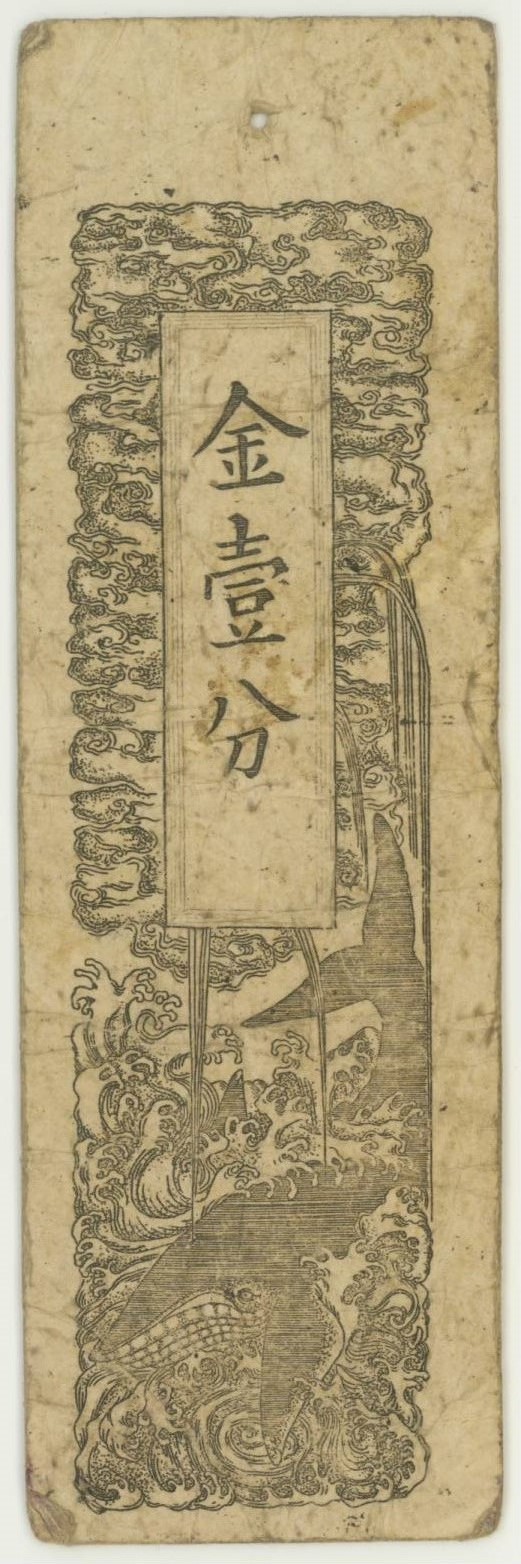 金壹分